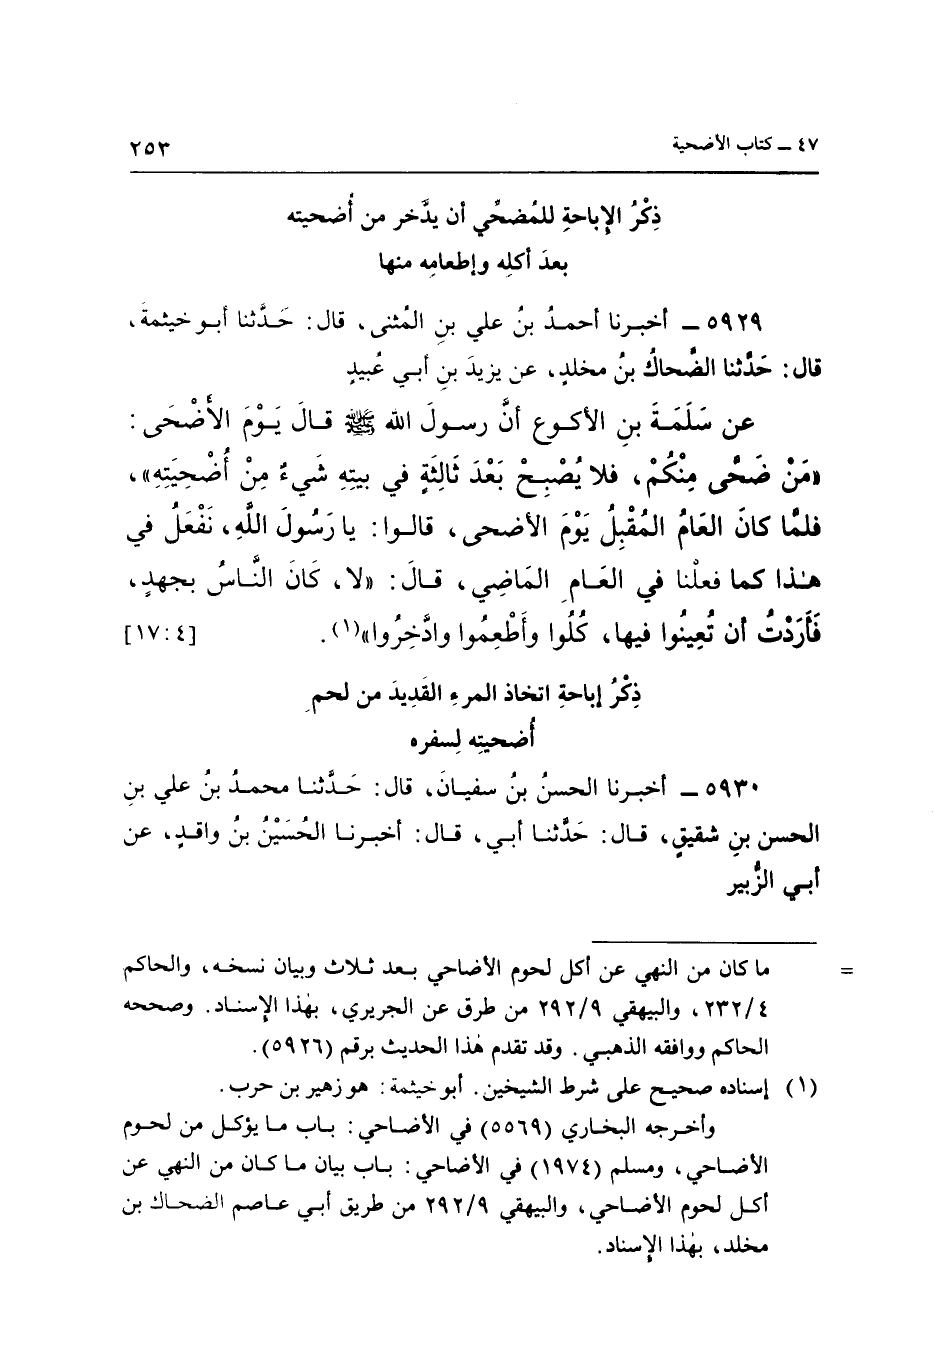 ٤٧ ـ كتاب الأضحية ٢٥٣
ذِكْرُ الإِباحةِ للمُضحِّي أن يدَّخر من أُضحيته
بعدَ أكلِه وإطعامِه منها
٥٩٢٩ ـ أخبرنا أحمدُ بنُ علي بنِ المُثنى، قال: حَدَّثنا أبو خيثمةَ،
قال: حَدَّثنا الضَّحاكُ بنُ مخلدٍ، عن يزيدَ بنِ أبي عُبيدٍ
عن سَلَمَةَ بنِ الأكوعِ أنَّ رسولَ الله ﷺ قالَ يَوْمَ الأَضْحَى:
«مَنْ ضَحَّى مِنْكُمْ، فلا يُصْبِحْ بَعْدَ ثَالِثَةٍ في بيتِهِ شَيءٌ مِنْ أُضْحِيَتِهِ»،
فلمَّا كانَ العَامُ المُقْبِلُ يَوْمَ الأضحى، قالوا: يا رَسُولَ اللَّهِ، نَفْعَلُ في
هٰذا كما فعلْنا في العَامِ المَاضِي، قالَ: «لا، كَانَ النَّاسُ بجهدٍ،
فَأَرَدْتُ أن تُعِينُوا فيها، كُلُوا وأَطْعِمُوا وادَّخِرُوا»(١). [٤:١٧]
ذِكْرُ إباحةِ اتخاذ المرءِ القَدِيدَ من لحمِ
أُضحيتِه لِسفره
٥٩٣٠ ـ أخبرنا الحسنُ بنُ سفيانَ، قال: حَدَّثنا محمدُ بنُ علي بنِ
الحسن بنِ شقيقٍ، قال: حَدَّثنا أبي، قال: أخبرنا الحُسَيْنُ بنُ واقدٍ، عن
أبي الزُّبير
= ما كان من النهي عن أكل لحوم الأضاحي بعد ثلاث وبيان نسخه، والحاكم
٢٣٢/٤، والبيهقي ٢٩٢/٩ من طرق عن الجريري، بهٰذا الإِسناد. وصححه
الحاكم ووافقه الذهبي. وقد تقدم هٰذا الحديث برقم (٥٩٢٦).
(١) إسناده صحيح على شرط الشيخين. أبو خيثمة: هو زهير بن حرب.
وأخرجه البخاري (٥٥٦٩) في الأضاحي: باب ما يؤكل من لحوم
الأضاحي، ومسلم (١٩٧٤) في الأضاحي: باب بيان ما كان من النهي عن
أكل لحوم الأضاحي، والبيهقي ٢٩٢/٩ من طريق أبي عاصم الضحاك بن
مخلد، بهٰذا الإِسناد.